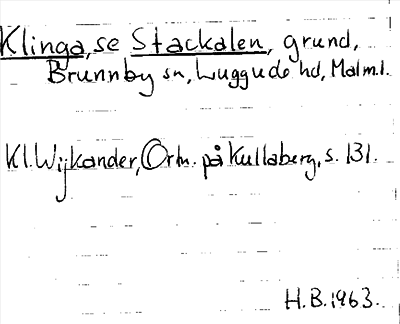 Klinga, se Stackalen, grund,
Brunnby sn, Luggude hd, Malm.l.
Kl. Wijkander, Ortn. på Kullaberg, s. 131.
H.B. 1963.